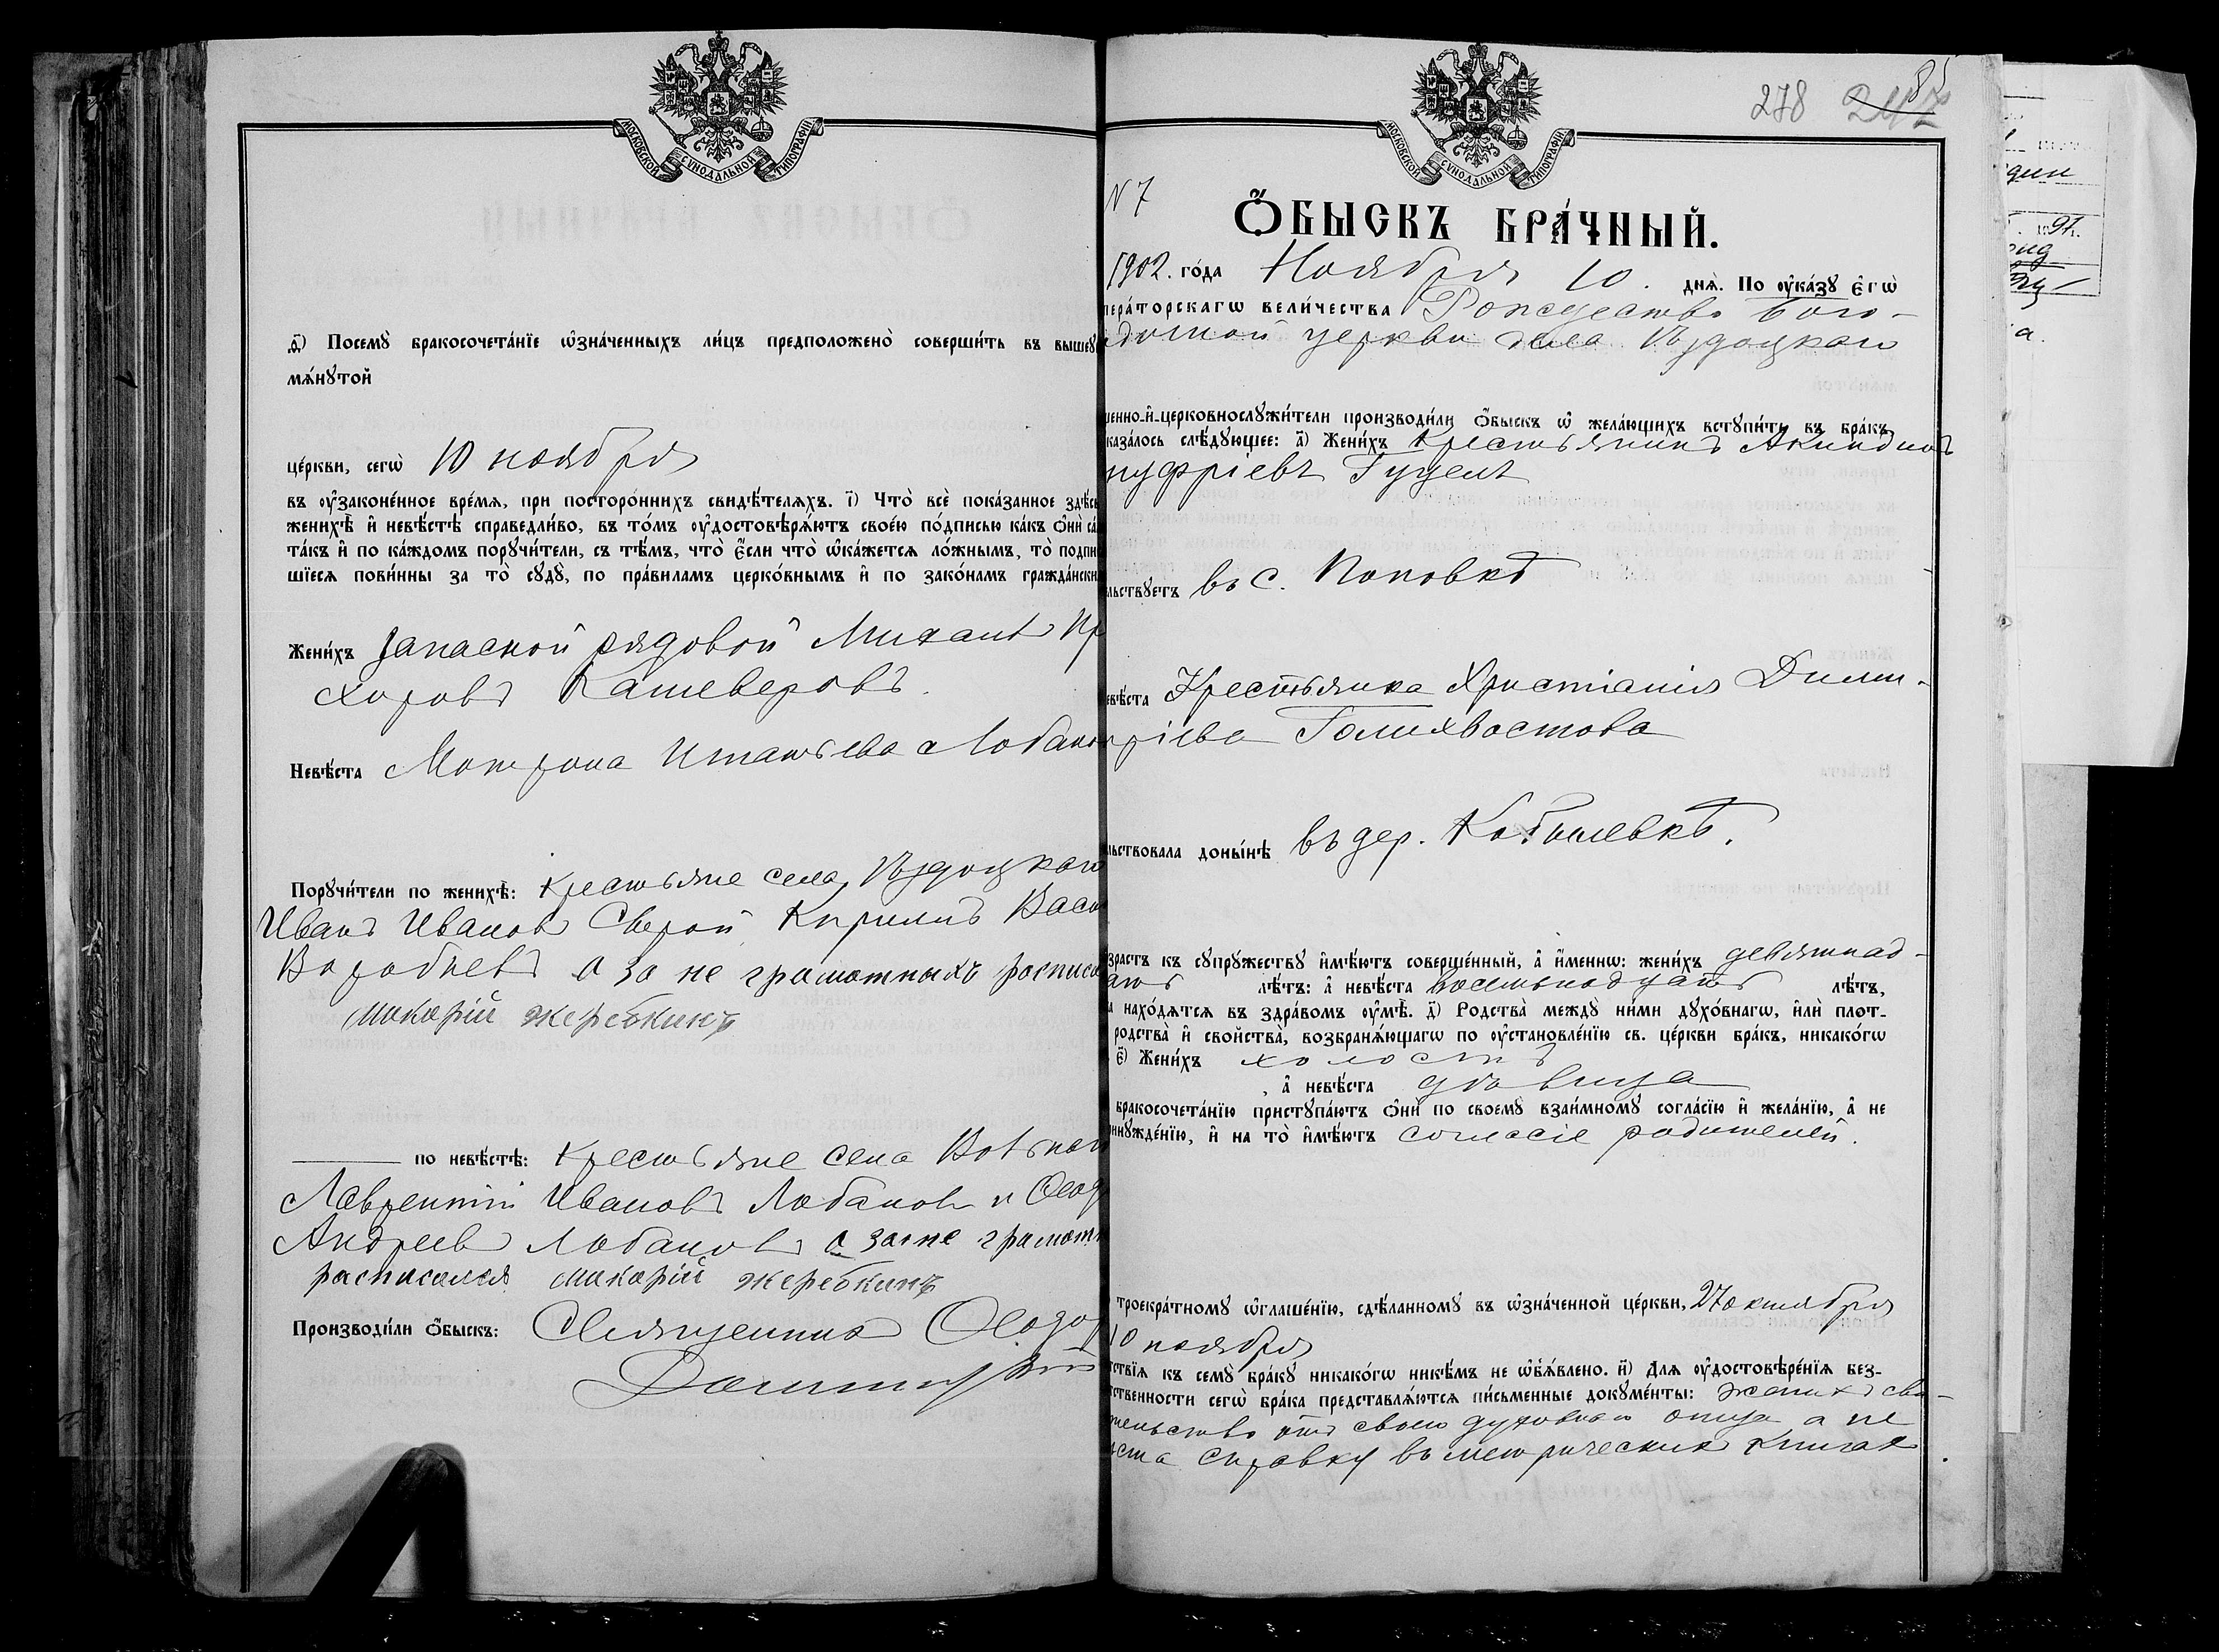 МОСКОВСКОЙ СУНОДАЛЬНОЙ ТИПОГРАФІИ
д҃) Посемꙋ̀ бракосочета́нїе ѡ҆зна́ченныхъ ли́цъ предположено̀ соверши́ть въ вышеꙋ
мѧ́нꙋтой
це́ркви, сегѡ̀ 10 ноября
въ ᲂу҆законе́нное вре́мѧ, при посторо́ннихъ свидѣ́телѧхъ. і҃) Что̀ всѐ пока́занное здѣ́сь
женихѣ̀ и҆ невѣ́стѣ справедли́во, въ то́мъ ᲂу҆достовѣрѧ́ютъ свое́ю по́дписью ка́къ ѻ҆нѝ са
та́къ и҆ по ка́ждомъ порꙋчи́тели, съ тѣ́мъ, что̀ є҆́сли что̀ ѡ҆ка́жетсѧ ло́жнымъ, то̀ подпи
шїесѧ пови́нны за то̀ сꙋдꙋ̀, по пра́виламъ церко́внымъ и҆ по зако́намъ гражда́нски
Жени́хъ Запасной рядовой Михаилъ Пр
хоровъ Кашеверовъ.
Невѣ́ста Матрона Игнатьева Лобано
Порꙋчи́тели по женихѣ̀: Крестьяне села Уздоцкаго
Иванъ Ивановъ Сверой Кирилъ Васи
Воробьевъ а за не грамотныхъ росписа
Макарій жеребкинъ
по невѣ́стѣ: Крестьяне села
Лаврентій Ивановъ Лобановъ и Ѳеод
Андреевъ Лобановъ а за не грамотн
расписался Макарій жеребкинъ
Производи́ли ѻ҆́быскъ: Священникъ Ѳеодо
МОСКОВСКОЙ СУНОДАЛЬНОЙ ТИПОГРАФІИ
278
85
N 7
Ѻ҆́БЫСКЪ БРА́ЧНЫЙ.
1902. го́да Ноября 10. днѧ̀. По ᲂу҆ка́зꙋ є҆гѡ̀
пера́торскагѡ вели́чества Рождество Бого-
родичной церкви села Уздоцкаго
щенно-и҆-церковнослꙋжи́тели производи́ли ѻ҆́быскъ ѡ҆ жела́ющихъ встꙋпи́ть въ бра́къ
каза́лось слѣ́дꙋющее: а҃) Жени́хъ Крестьянинъ Акиндинъ
нуфріевъ Гуцевъ
льствꙋетъ въ с. Поповкѣ
евѣ́ста Крестьянка Христіанія Дими-
тріева Голихвостова
льствовала доны́нѣ въ дер. Кобылевкѣ.
зрастъ къ сꙋпрꙋжествꙋ и҆мѣ́ютъ соверше́нный, а҆ и҆́менно: жени́хъ девятнад-
цать лѣ́тъ: а҆ невѣ́ста восемьнадцать лѣ́тъ,
и нахо́дѧтсѧ въ здра́вомъ ᲂу҆мѣ̀. д҃) Родства̀ междꙋ̀ ни́ми дꙋхо́внагѡ, и҆лѝ плот-
родства̀ и҆ свойства̀, возбранѧ́ющагѡ по ᲂу҆становле́нїю св. це́ркви бра́къ, никако́гѡ
є҃) Жени́хъ холостъ
, а҆ невѣ́ста дѣвица
бракосочета́нїю пристꙋпа́ютъ ѻ҆нѝ по своемꙋ̀ взаи́мномꙋ согла́сїю и҆ жела́нїю, а҆ не
инꙋжде́нїю, и҆ на то̀ и҆мѣ́ютъ согласіе родителей.
троекра́тномꙋ ѡ҆глаше́нїю, сдѣ́ланномꙋ въ ѡ҆зна́ченной це́ркви, 27 октября
10 ноября
тствїѧ къ семꙋ̀ бра́кꙋ никако́гѡ никѣ́мъ не ѡ҆б̾ѧ́влено. и҃) Длѧ ᲂу҆достовѣре́нїѧ без-
тственности сегѡ̀ бра́ка представлѧ́ютсѧ пи́сьменные докꙋме́нты: женихъ сви-
тельство отъ своего духовнаго отца а не
ѣста справку въ метрическихъ книгахъ.